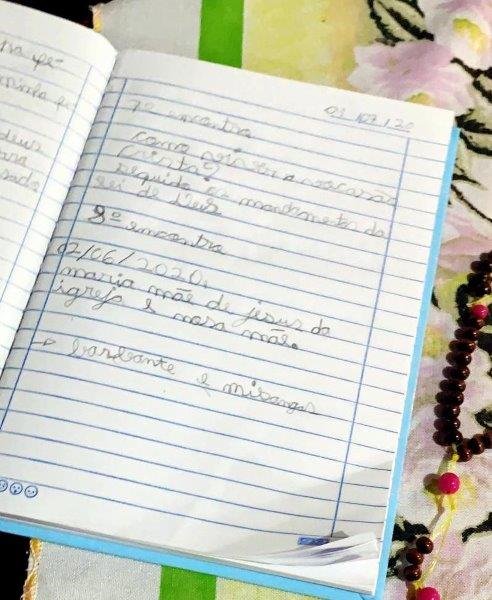 minha pe
deus
01/07/20
7º encontro
como viver a vocação
cristã?
seguido os mandmetos da
lei de deus
8º encontro
02/06/2020.
maria mãe de jesus da
igreja e nosa mãe.
→ barbante e misangas